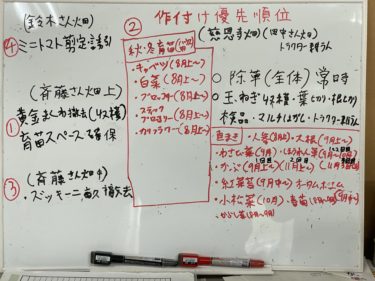 ② 作付け優先順位
(鈴木さん畑)
④ミニトマト剪定誘引
(斉藤さん畑上)
①黄金まくわ撤去(4ス穫)
・育苗スペース確保
(斉藤さん畑中)
③・ズッキーニ、苗欠撤去
秋・冬育苗
・キャベツ(8月上〜)
・白菜(8月上〜)
・ブロッコリー(8月上〜)
・スティックブロッコリー(8月上〜)
・カリフラワー(8月上〜)
(慈恩寺畑)(田中さん畑)
トラクター耕うん
○除草(全体)常時
○玉ねぎ収穫・葉切り・根切り
検品・マルチはがし・トラクター耕うん
直まき
・人参(8月上)・大根(9月上〜)
・わさび菜(9月)・ほうれん草(9月〜10月)
1回目 2回目
・かぶ(9月上)(11月上)
・紅菜苔(9月中〜)オータムポエム
・小松菜(10月)・春菊